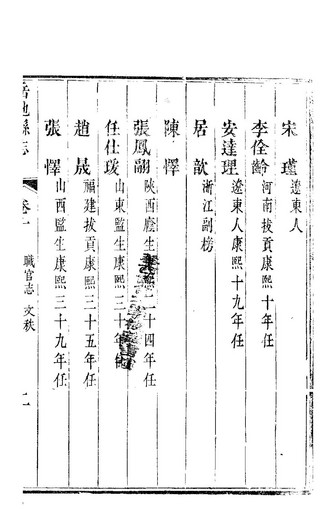 宋瑾 遼東人
李佺齡 河南拔貢康熙十年任
安達理 遼東人康熙十九年任
居歆 浙江副榜
陳懌
張鳳翮 陝西廕生康熙二十四年任
任仕瑗 山東監生康熙三十年任
趙晟 福建拔貢康熙三十五年任
張懌 山西監生康熙三十九年任
縣志 卷十 職官志 文秩